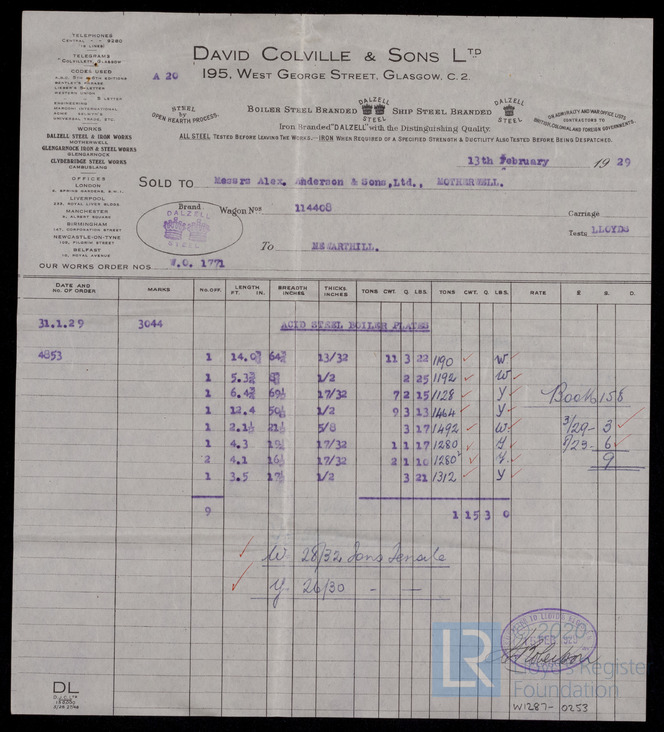 TELEPHONES
CENTRAL 8280
(6 LINES)
TELEGRAMS
"COLVILLE", GLASGOW.
CODES USED
BENTLEY'S PHRASE
LIEBER'S 5-LETTER
WESTERN UNION
5 LETTER
ENGINEERING
MARCONI INTERNATIONAL
UNIVERSAL TRADE, ETC.
WORKS
DALZELL STEEL & IRON WORKS
MOTHERWELL
GLENGARNOCK IRON & STEEL WORKS
GLENGARNOCK
CLYDEBRIDGE STEEL WORKS
CAMBUSLANG
OFFICES
LONDON
LIVERPOOL
235, ROYAL LIVER BLDG
MANCHESTER
6, ALBERT SQUARE
BIRMINGHAM
NEWCASTLE-ON-TYNE
BELFAST
DAVID COLVILLE & SONS LTD
195, WEST GEORGE STREET, GLASGOW, C. 2.
A 20
STEEL
by
OPEN HEARTH PROCESS.
BOILER STEEL BRANDED DALZELL STEEL SHIP STEEL BRANDED DALZELL STEEL
ON ADMIRALTY AND WAR OFFICE LISTS
CONTRACTORS TO
BRITISH, COLONIAL AND FOREIGN GOVERNMENTS.
Iron Branded "DALZELL" with the Distinguishing Quality.
ALL STEEL TESTED BEFORE LEAVING THE WORKS.—IRON WHEN REQUIRED OF A SPECIFIED STRENGTH & DUCTILITY ALSO TESTED BEFORE BEING DESPATCHED.
13th February 1929
SOLD TO Messrs Alex. Anderson & Sons, Ltd., MOTHERWELL.
Brand
DALZELL
STEEL
Wagon Nos 114408
Carriage
Tests LLOYDS
To
OUR WORKS ORDER NOS W.O. 1771
DATE AND No. OF ORDER MARKS No. OFF. LENGTH FT. IN. BREADTH INCHES THICKS INCHES TONS CWT. Q. LBS. TONS CWT. Q. LBS. RATE £ S. D.
31.1.29 3044 ACID STEEL BOILER PLATES
4853 1 14.0¾ 64¾ 13/32 11 3 22 1190 W
1 5.3¾ 1/2 2 25 1192 W
1 6.4¾ 69½ 17/32 7 2 15 1128 Y
1 12.4 50½ 1/2 9 3 13 1464 Y
1 2.1½ 21½ 5/8 3 17 1492 W
1 4.3 19½ 17/32 1 1 17 1280 Y
2 4.1 16½ 17/32 2 1 10 1280² Y
1 3.5 17½ 1/2 3 21 1312 Y
Book 158
3/29 - 3
6
9
9 1 15 3 0
W 28/32 Tons Tensile
Y 26/30 — —
LR
Lloyd's Register
Foundation
W1287-0253
DL